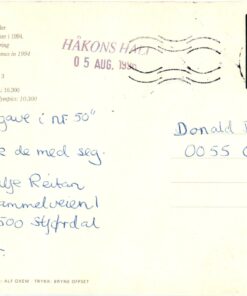 i 1994.
ring
mes in 1994
3
: 10.300
lympics: 10.300
HÅKONS HALL
05 AUG. 199
gave i nr 50"
e de med seg.
lje Reitan
ammelveien 1
500 Stjørdal
Donald D
0055 O
: ALF OXEM · TRYKK: BRYNE OFFSET